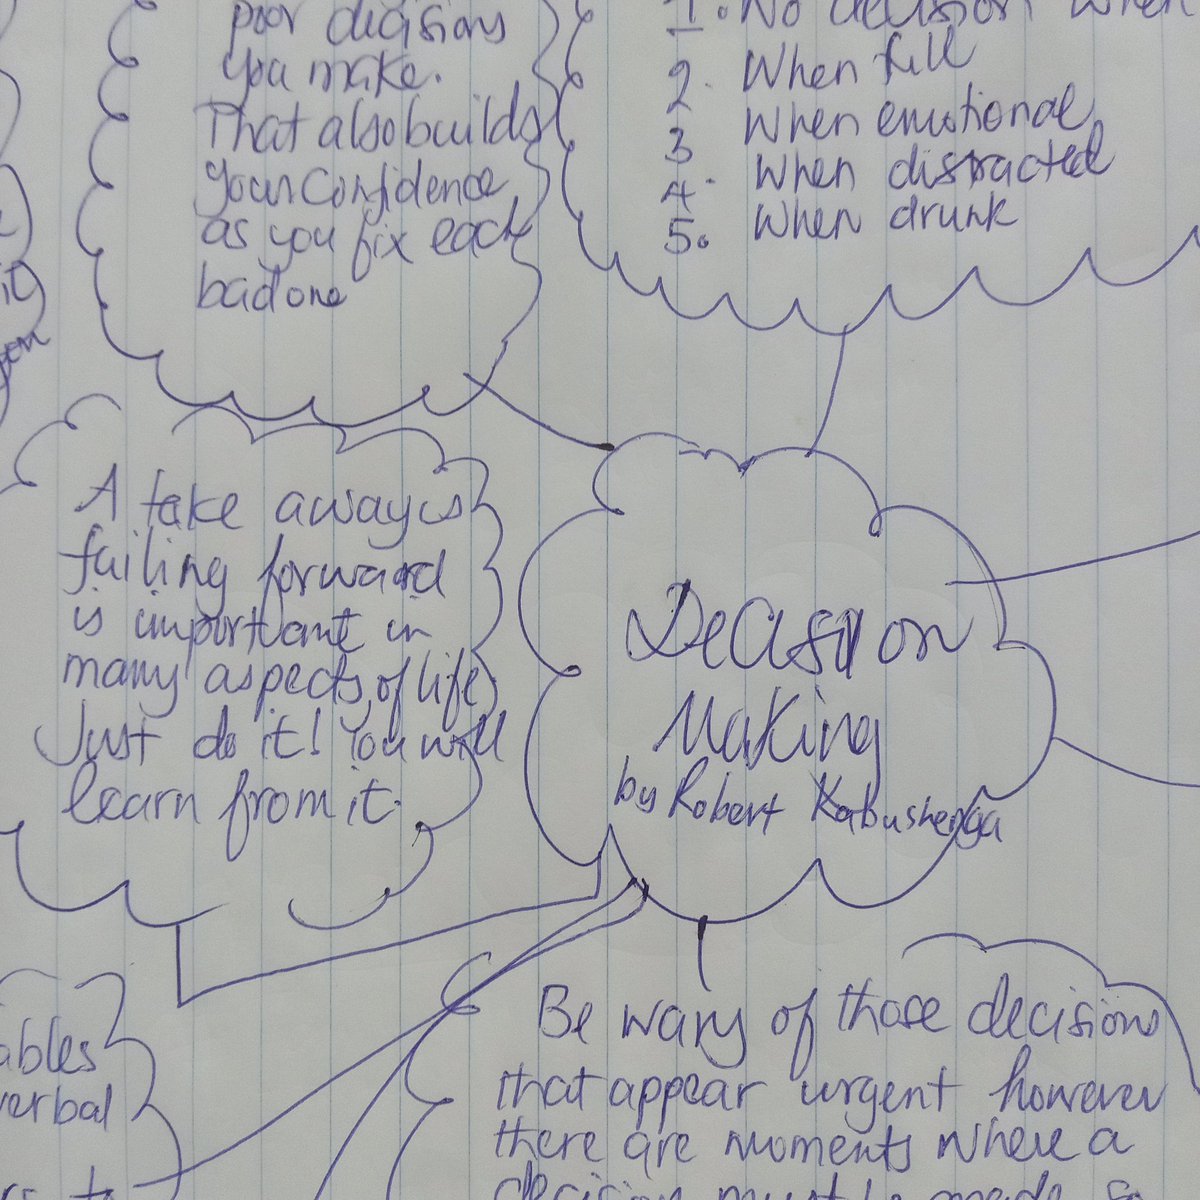 poor decisions
you make.
That also builds
your confidence
as you fix each
bad one
1. No decision when
2. When full
3 When emotional
4. When distracted
5. When drunk
it
A take away is
failing forward
is important in
many aspects of life
Just do it! You will
learn from it.
Decision
Making
by Robert Kabushenga
ables
verbal
to
Be wary of those decisions
that appear urgent however
there are moments where a
decision must be made so